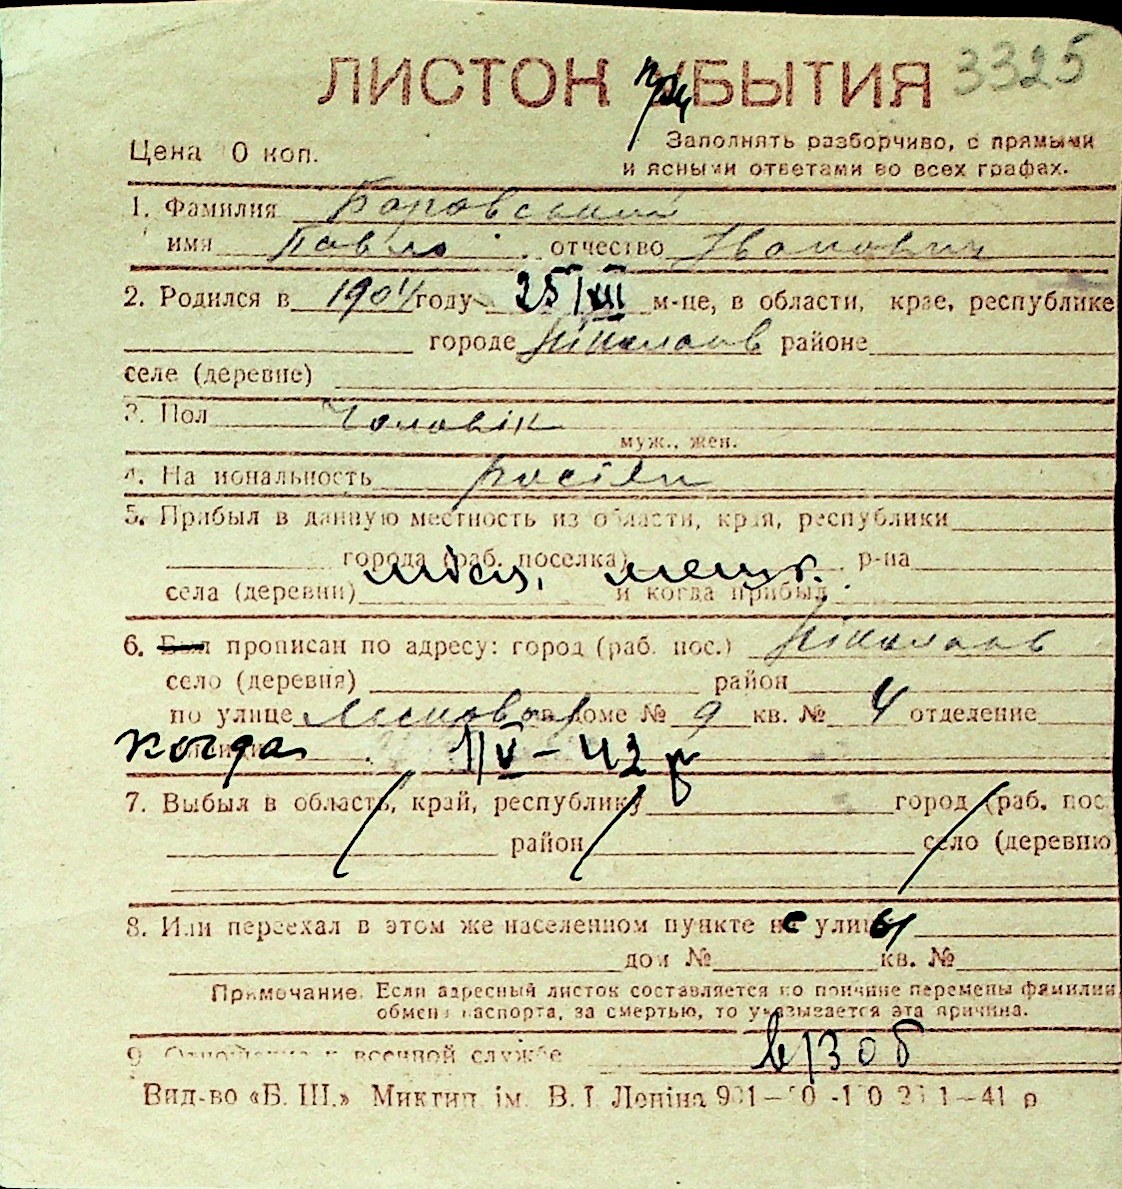 ЛИСТОК УБЫТИЯ 3325
Цена 0 коп.
Заполнять разборчиво, с прямыми
и ясными ответами во всех графах.
1. Фамилия Боровський
имя Павло отчество Іванович
2. Родился в 1904 году 25/VIII м-це, в области, крае, республике
городе Ніколаїв районе
селе (деревне)
3. Пол Чоловік
муж., жен.
4. Национальность росіян
5. Прибыл в данную местность из области, края, республики
города (раб. поселка) р-на
місц. меш.
села (деревни) и когда прибыл
6. Был прописан по адресу: город (раб. пос.) Ніколаїв
село (деревня) район
по улице в доме № 9 кв. № 4 отделение
когда 1/V-42 р
7. Выбыл в область, край, республику город (раб. пос.
район село (деревню)
8. Или переехал в этом же населенном пункте с улицы
дом № кв. №
Примечание. Если адресный листок составляется по причине перемены фамилии,
обмена паспорта, за смертью, то указывается эта причина.
9. Отношение к военной службе в/зоб
Вид-во «Б. Ш.» Миктип. ім. В. І. Леніна